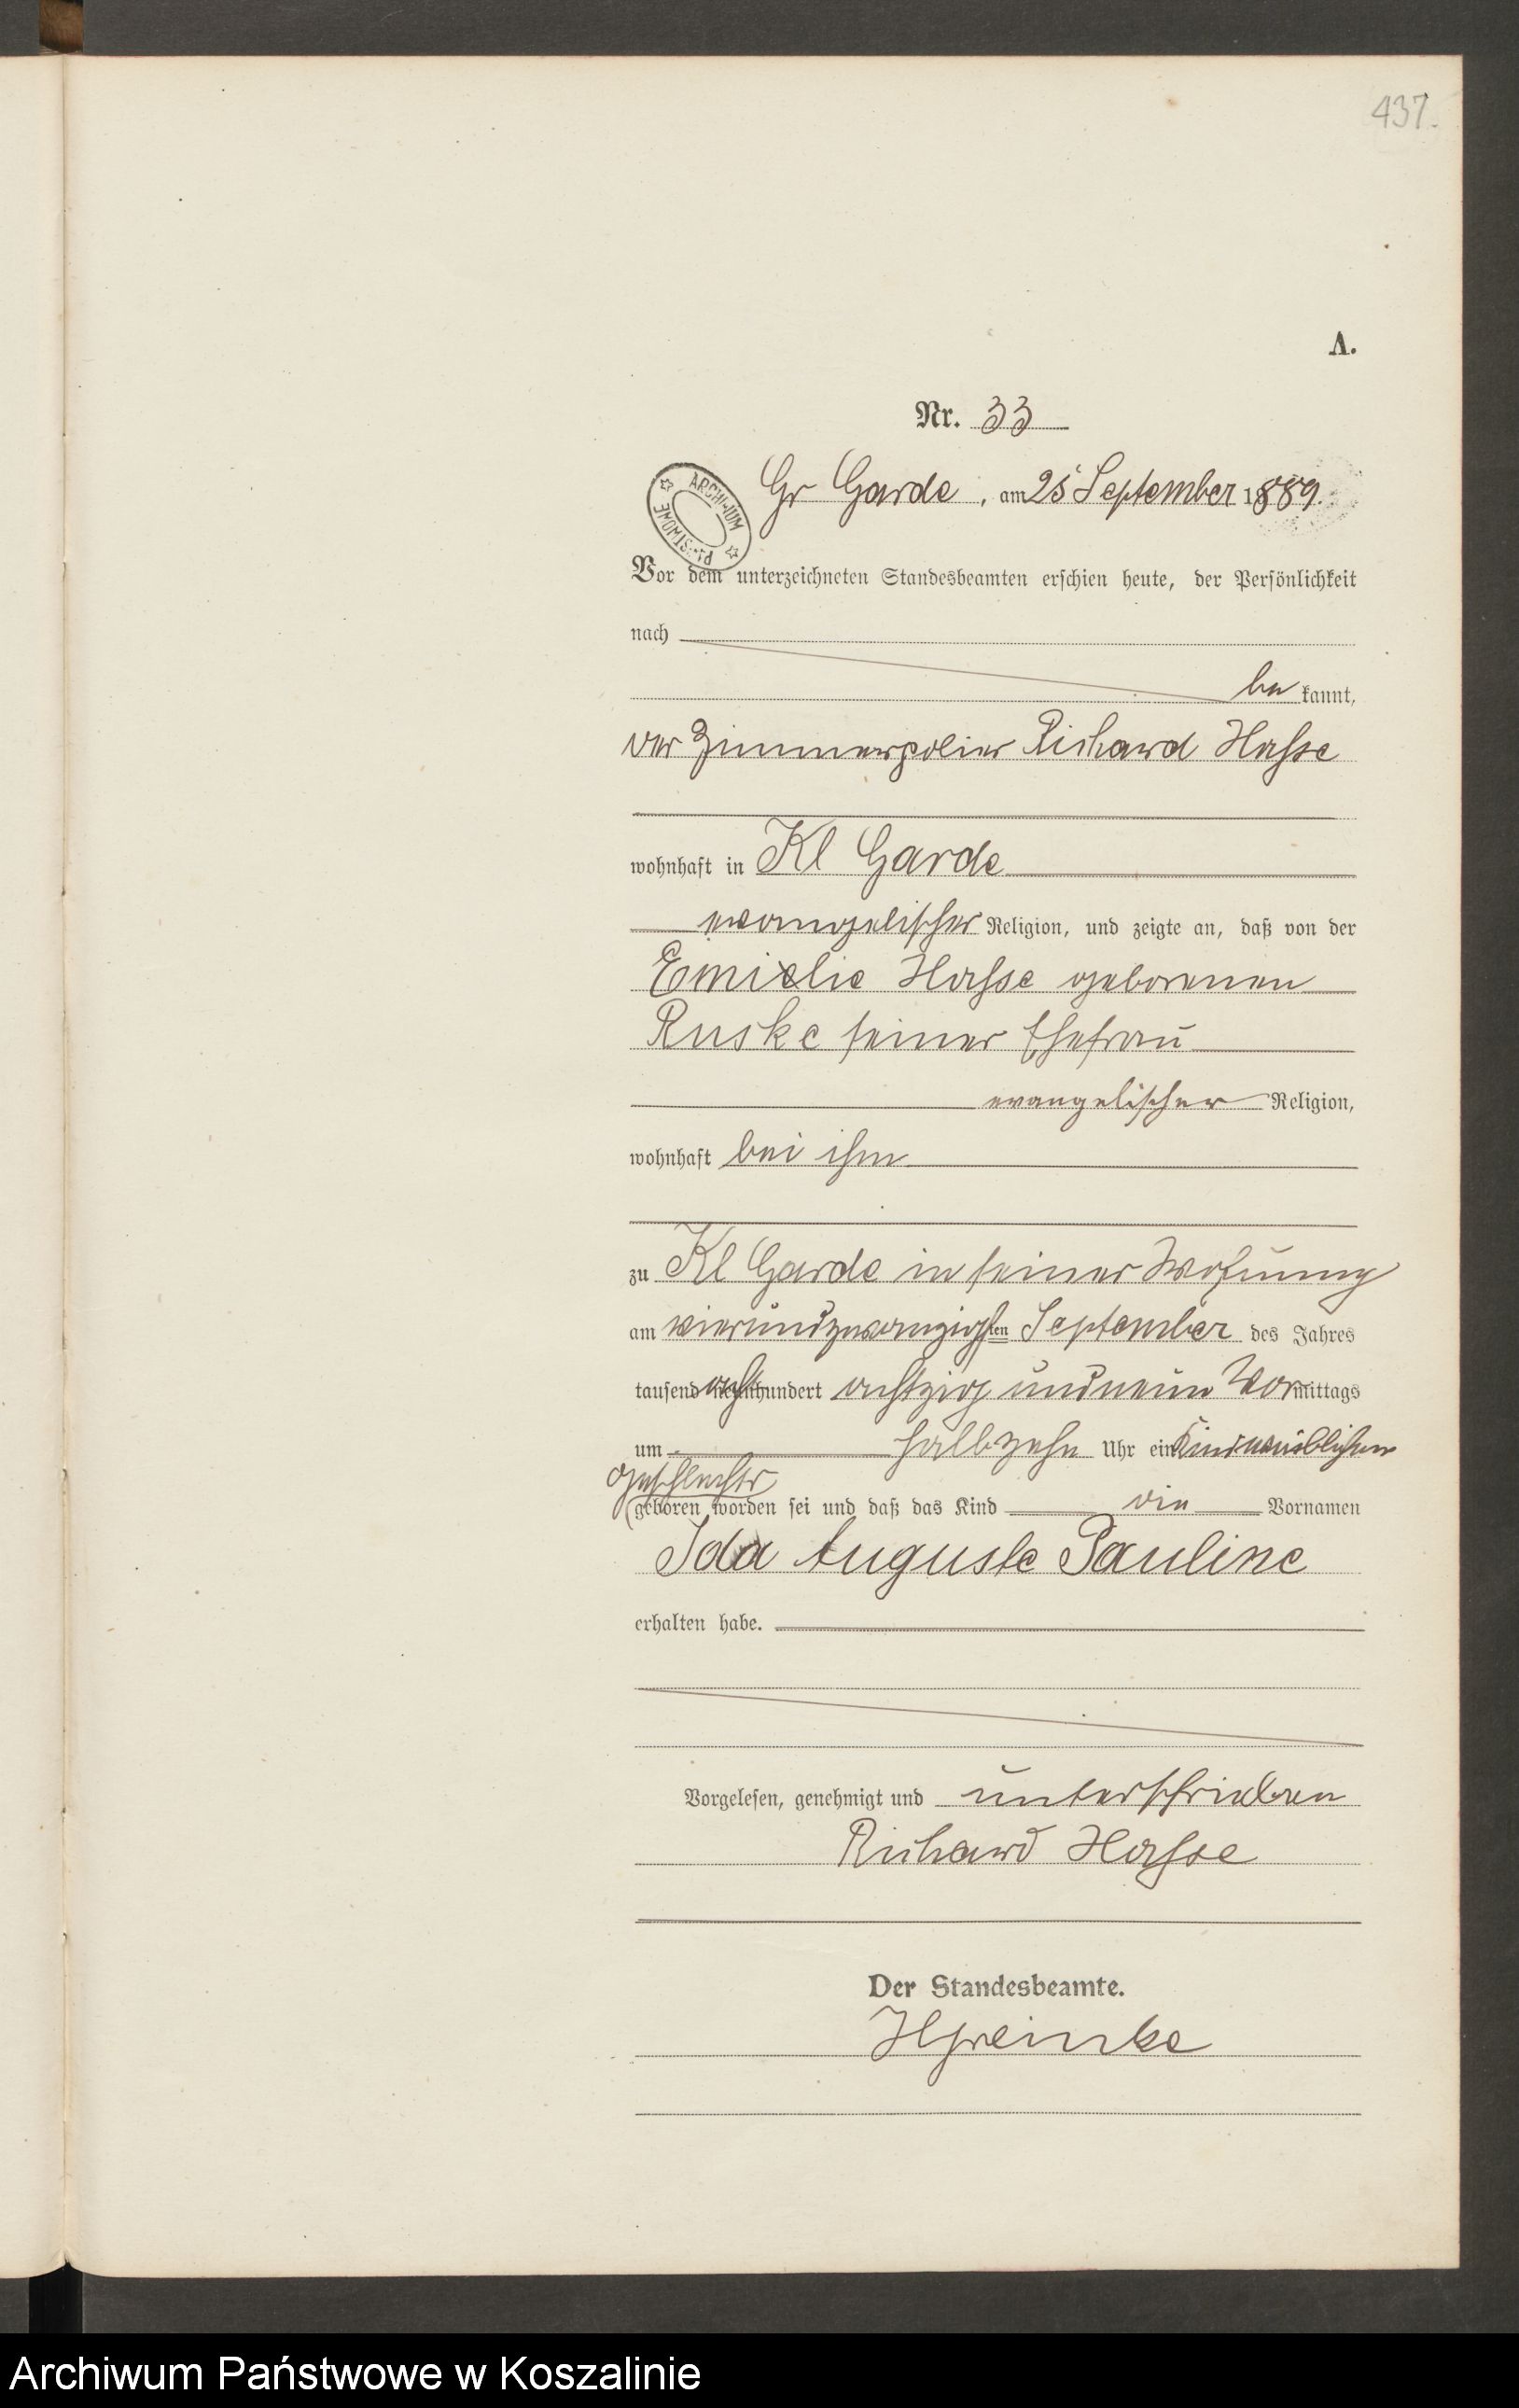 437.
A.
Nr. 33
ARCHIWUM PAŃSTWOWE
Gr Garde, am 25 September 1889.
Vor dem unterzeichneten Standesbeamten erschien heute, der Persönlichkeit
nach
be kannt,
der Zimmerpolier Richard Hasse
wohnhaft in Kl Garde
evangelischer Religion, und zeigte an, daß von der
Emielie Hasse geborenen
Ruske seiner Ehefrau
evangelischer Religion,
wohnhaft bei ihm
zu Kl Garde in seiner Wohnung
am vierundzwanzigsten September des Jahres
tausend acht hundert achtzig und neun Vormittags
um halb zehn Uhr ein Kind weiblichen
Geschlechts
geboren worden sei und daß das Kind die Vornamen
Ida Auguste Pauline
erhalten habe.
Vorgelesen, genehmigt und unterschrieben
Richard Hasse
Der Standesbeamte.
Archiwum Państwowe w Koszalinie